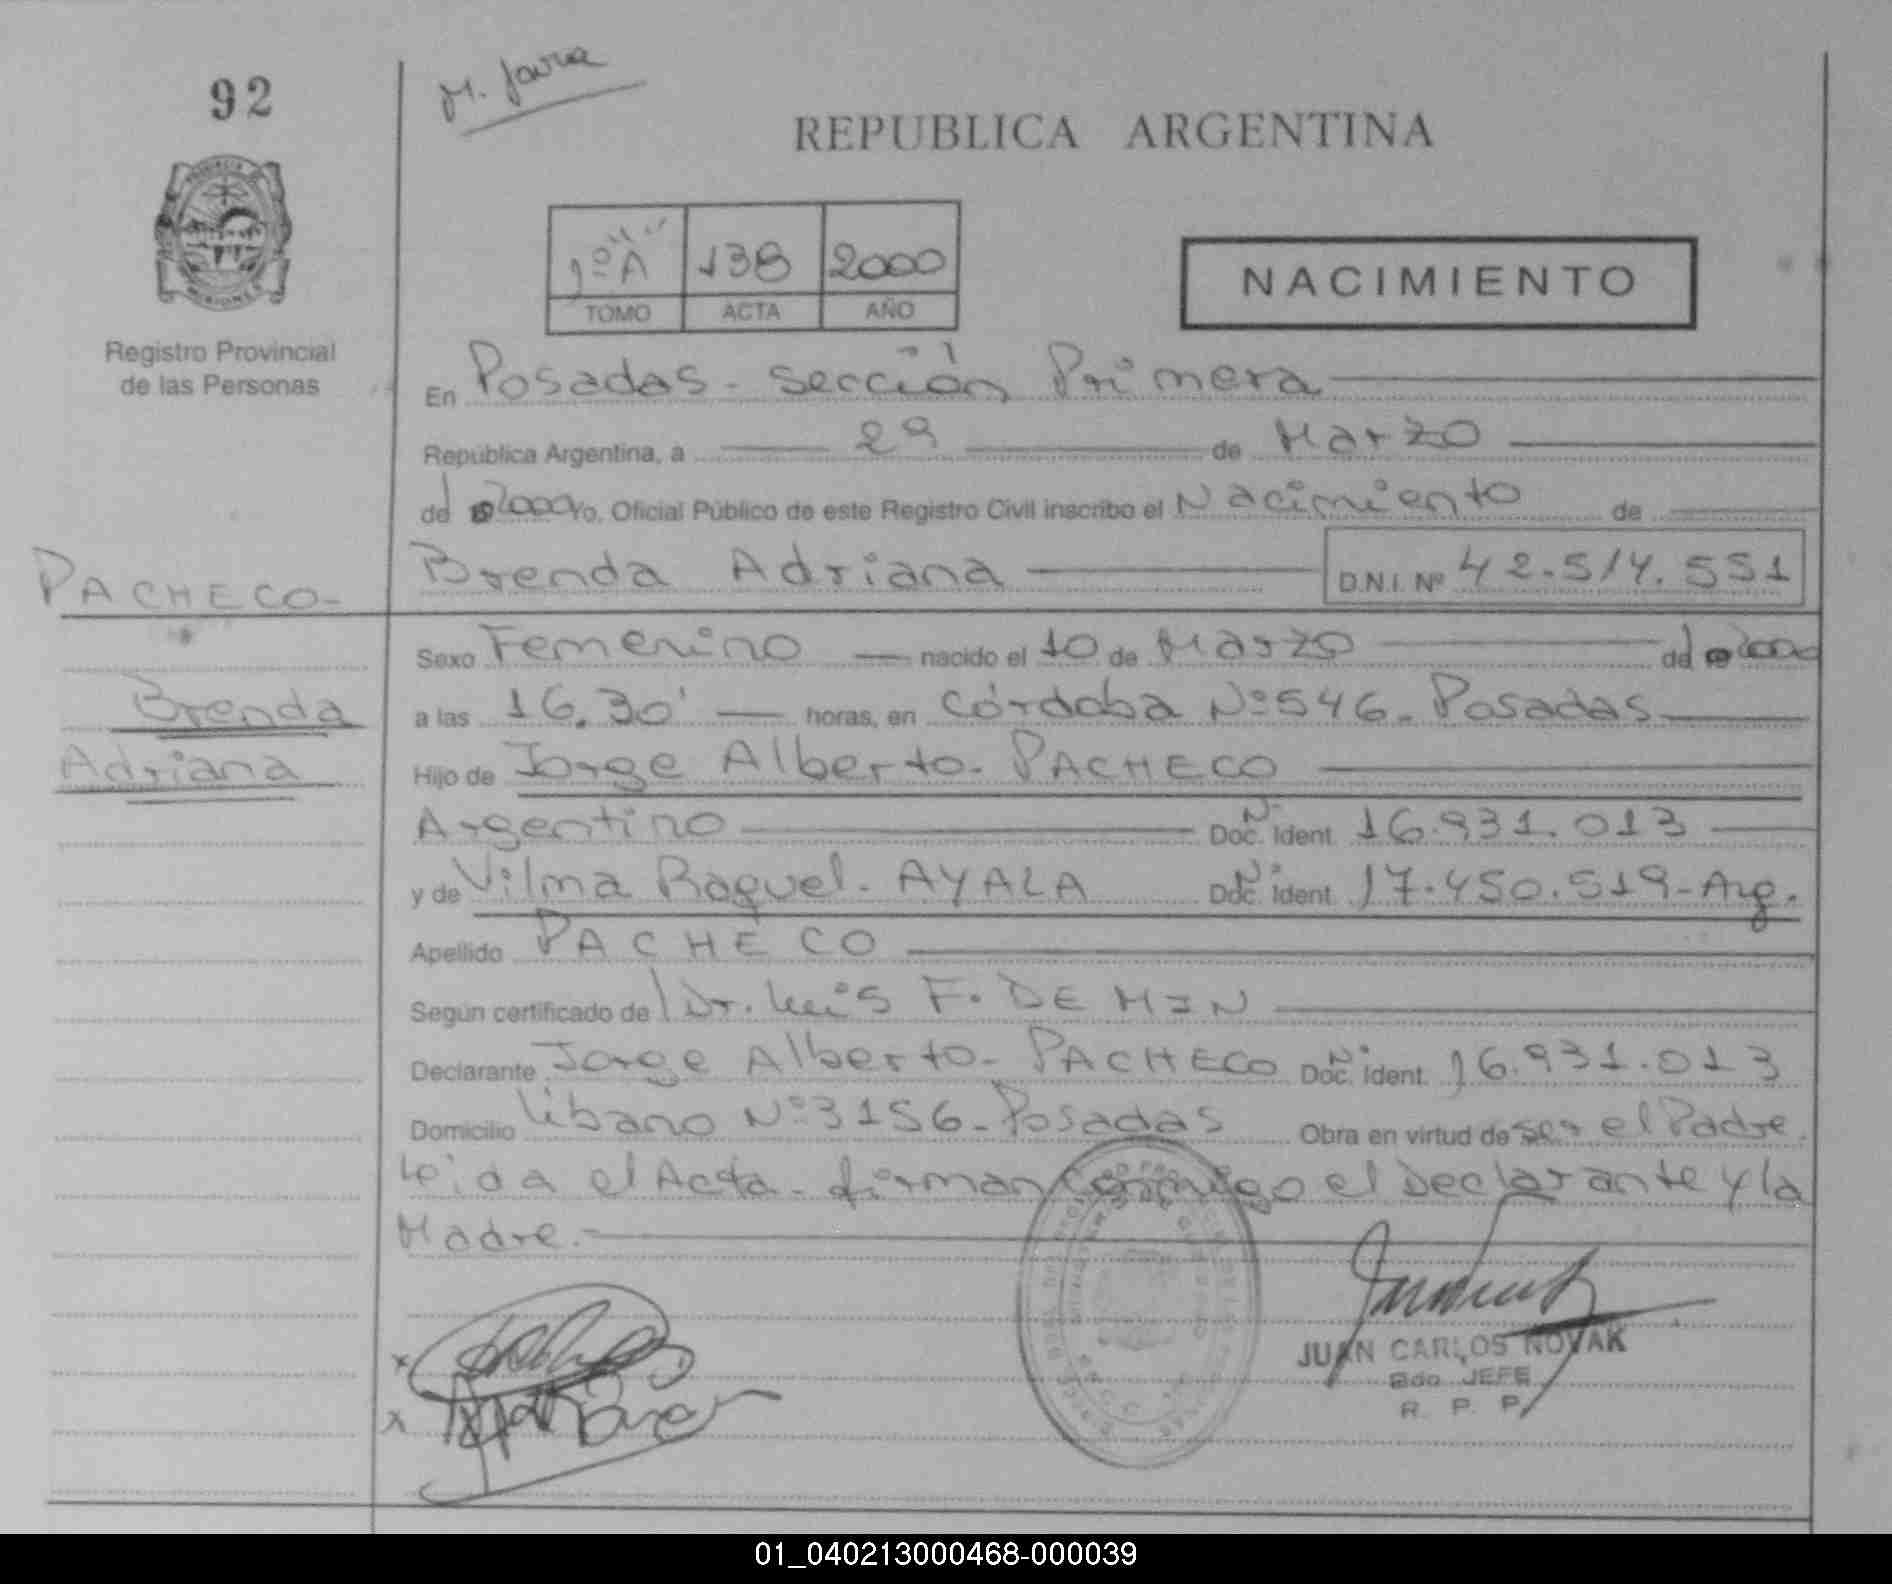 92
REPUBLICA ARGENTINA
1º "A" 138 2000
TOMO ACTA AÑO
NACIMIENTO
Registro Provincial
de las Personas
En Posadas - sección Primera
República Argentina, a 29 de Marzo
de 2000 Yo, Oficial Público de este Registro Civil inscribo el Nacimiento de
Brenda Adriana D.N.I. Nº 42.514.551
PACHECO-
Brenda
Adriana
Sexo Femenino nacido el 10 de Marzo de 2000
a las 16,30' horas, en Córdoba Nº 546. Posadas
Hijo de Jorge Alberto - PACHECO
Argentino Nº Doc. Ident. 16.931.013
y de Vilma Raquel - AYALA Nº Doc. Ident. 17.450.519-Arg.
Apellido PACHECO
Según certificado de Dr. Luis F. DE MIN
Declarante Jorge Alberto - PACHECO Nº Doc. Ident. 16.931.013
Domicilio Líbano Nº 3156 - Posadas Obra en virtud de ser el Padre.
Leída el Acta - firman conmigo el Declarante y la
Madre.-
JUAN CARLOS NOVAK
Sdo. JEFE
R. P. P.
01_040213000468-000039